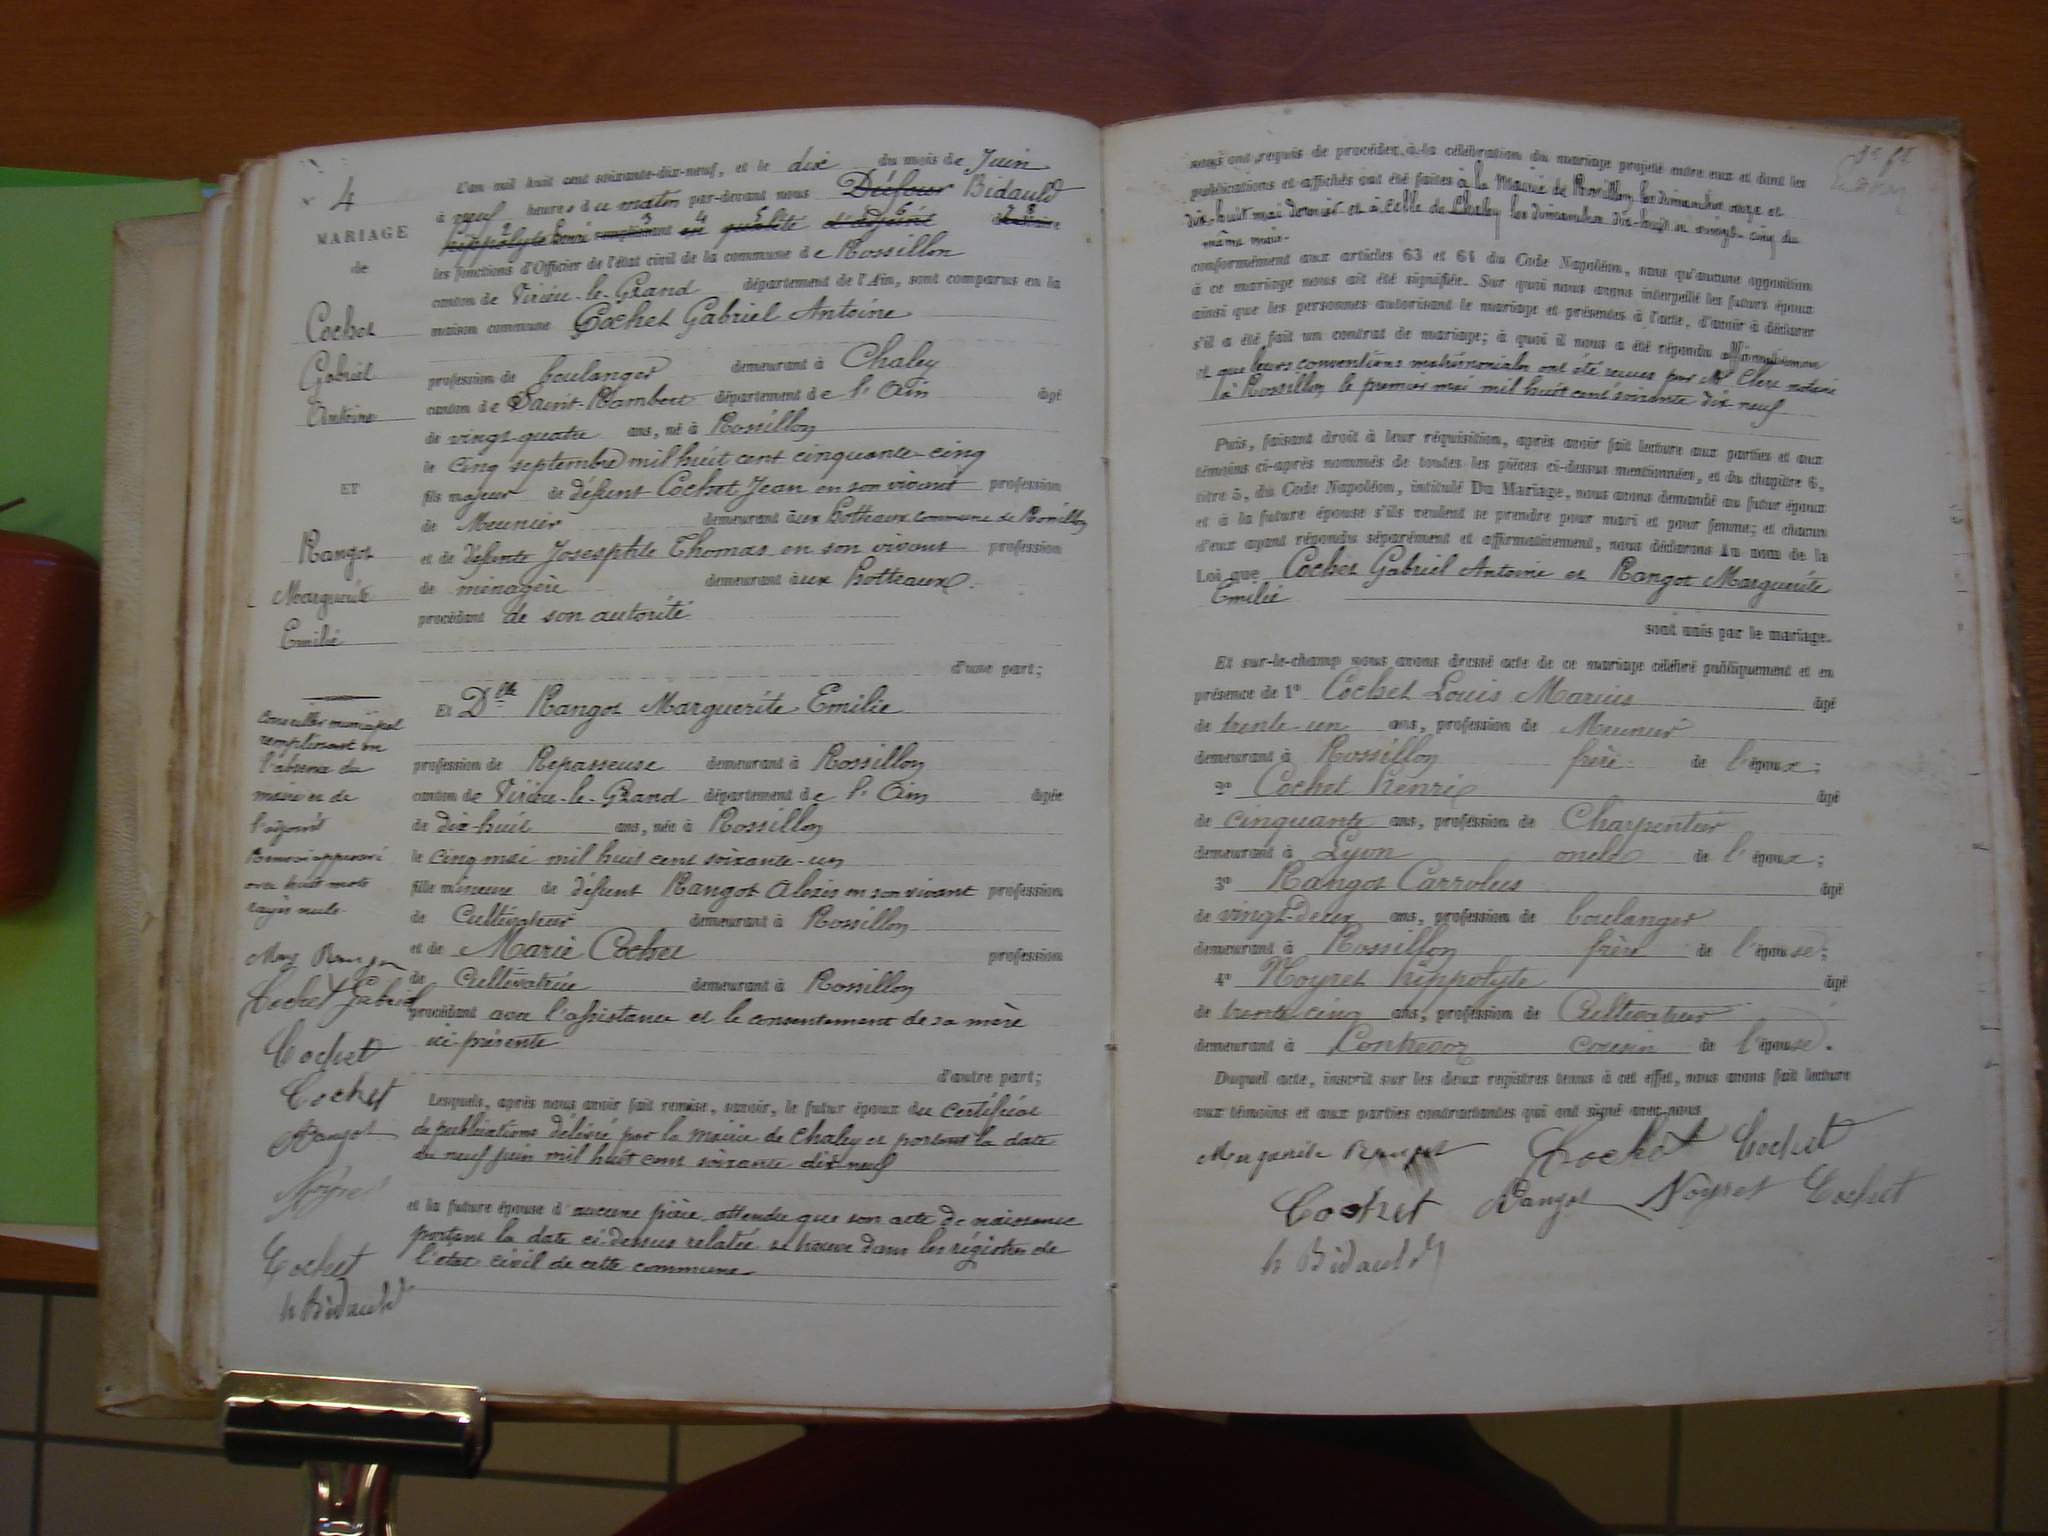 N° 4
MARIAGE
de
Cochet
Gabriel
Antoine
ET
Rangot
Marguerite
Emilie
Conseiller municipal
remplissant en
l'absence du
maire et de
l'adjoint
Renvoi approuvé
avec huit mots
rayés nuls.
Cochet Gabriel
Cochet
Cochet
Rangot
Noyret
Cochet
h Bidauld
L'an mil huit cent soixante-dix-neuf, et le dix du mois de Juin
à neuf heures du matin par-devant nous Dufour Bidauld
hippolyte henri remplissant en qualité d'adjoint
les fonctions d'Officier de l'état civil de la commune de Rossillon
canton de Virieu-le-Grand département de l'Ain, sont comparus en la
maison commune Cochet Gabriel Antoine
profession de boulanger demeurant à Chaley
canton de Saint-Rambert département de l'Ain âgé
de vingt-quatre ans, né à Rossillon
le cinq septembre mil huit cent cinquante-cinq
fils majeur de défunt Cochet Jean en son vivant profession
de Meunier demeurant aux hotteaux commune de Rossillon
et de défunte Josephte Thomas en son vivant profession
de ménagère demeurant aux hotteaux.
procédant de son autorité
d'une part;
Et Dlle Rangot Marguerite Emilie
profession de Repasseuse demeurant à Rossillon
canton de Virieu-le-Grand département de l'Ain âgée
de dix-huit ans, née à Rossillon
le cinq mai mil huit cent soixante-un
fille mineure de défunt Rangot Alexis en son vivant profession
de Cultivateur demeurant à Rossillon
et de Marie Cochet profession
de Cultivatrice demeurant à Rossillon
procédant avec l'assistance et le consentement de sa mère
ici présente
d'autre part;
Lesquels, après nous avoir fait remise, savoir, le futur époux du certificat
de publications délivré par la mairie de Chaley et portant la date
du neuf juin mil huit cent soixante dix neuf
et la future épouse d'aucune pièce attendu que son acte de naissance
portant la date ci-dessus relatée se trouve dans les régistres de
l'état civil de cette commune
nous ont requis de procéder à la célébration du mariage projeté entre eux et dont les
publications et affiches ont été faites à la Mairie de Rossillon les dimanches onze et
dix-huit mai dernier et à celle de Chaley les dimanches dix-huit et vingt-cinq du
même mois.
conformément aux articles 63 et 64 du Code Napoléon, sans qu'aucune opposition
à ce mariage nous ait été signifiée. Sur quoi nous avons interpellé les futurs époux
ainsi que les personnes autorisant le mariage et présentes à l'acte, d'avoir à déclarer
s'il a été fait un contrat de mariage; à quoi il nous a été répondu affirmativement
et que leurs conventions matrimoniales ont été reçues par Me Clerc notaire
à Rossillon le premier mai mil huit cent soixante dix neuf
Puis, faisant droit à leur réquisition, après avoir fait lecture aux parties et aux
témoins ci-après nommés de toutes les pièces ci-dessus mentionnées, et du chapitre 6,
titre 5, du Code Napoléon, intitulé Du Mariage, nous avons demandé au futur époux
et à la future épouse s'ils veulent se prendre pour mari et pour femme; et chacun
d'eux ayant répondu séparément et affirmativement, nous déclarons Au nom de la
Loi que Cochet Gabriel Antoine et Rangot Marguerite
Emilie
sont unis par le mariage.
Et sur-le-champ nous avons dressé acte de ce mariage célébré publiquement et en
présence de 1° Cochet Louis Marius âgé
de trente-un ans, profession de Meunier
demeurant à Rossillon frère de l'époux;
2° Cochet Henri âgé
de cinquante ans, profession de Charpentier
demeurant à Lyon oncle de l'époux;
3° Rangot Carrolus âgé
de vingt-deux ans, profession de boulanger
demeurant à Rossillon frère de l'épouse;
4° Noyret hippolyte âgé
de trente cinq ans, profession de Cultivateur
demeurant à Contrevoz cousin de l'épouse.
Duquel acte, inscrit sur les deux registres tenus à cet effet, nous avons fait lecture
aux témoins et aux parties contractantes qui ont signé avec nous
Marguerite Rangot Cochet Cochet
Cochet Rangot Noyret Cochet
h Bidauld